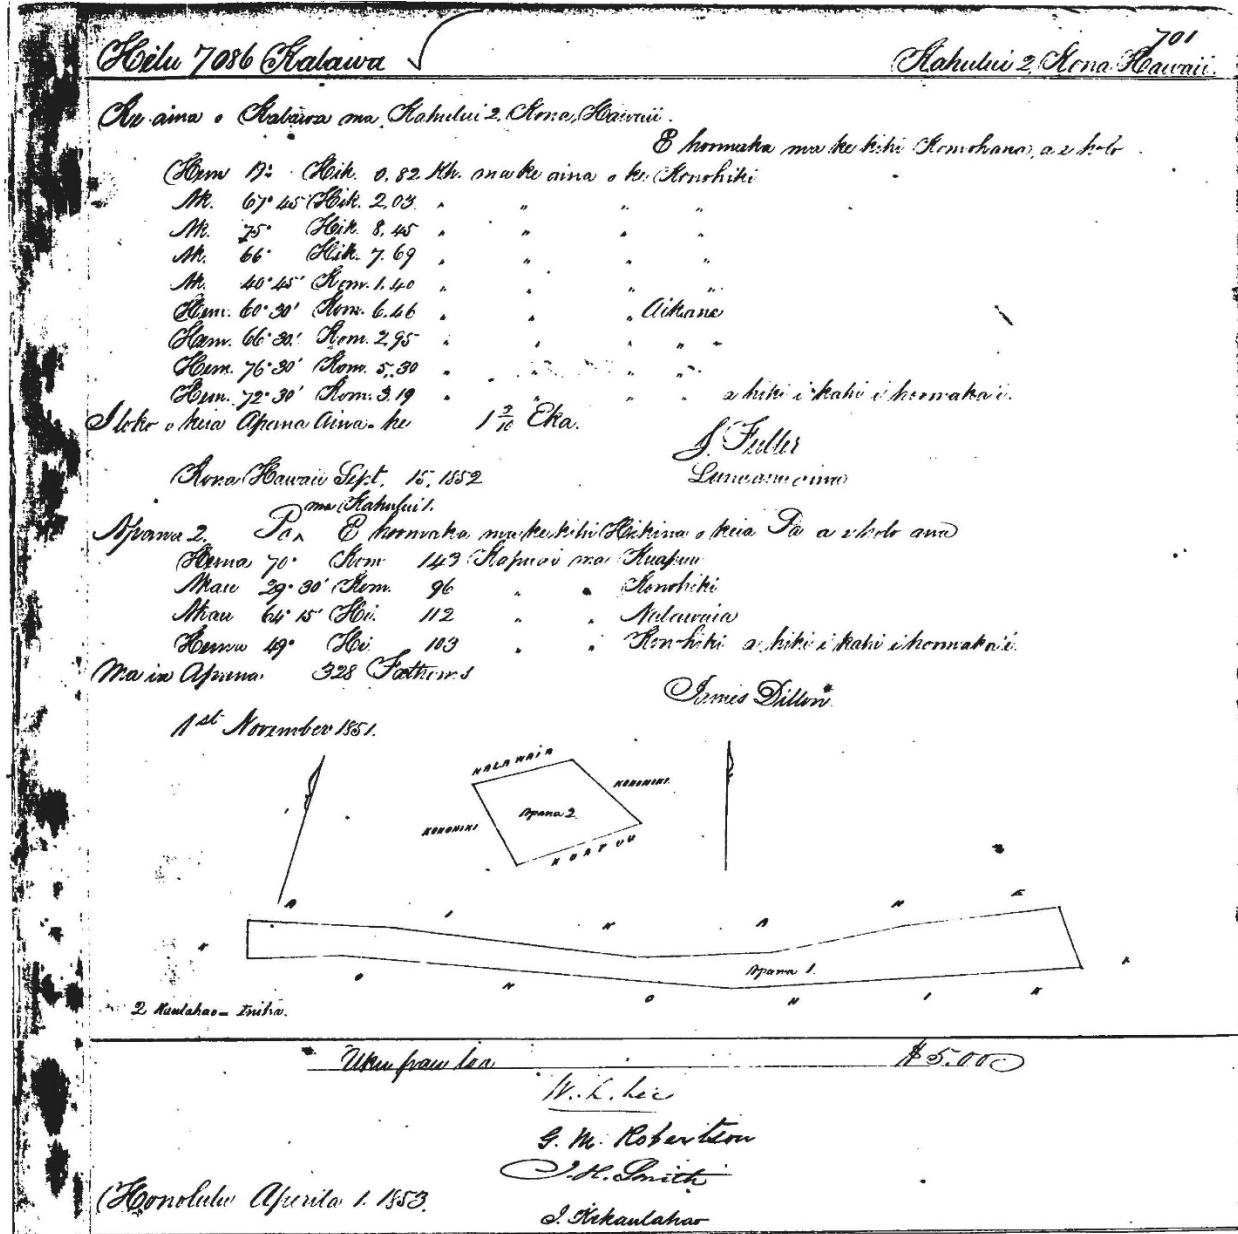 701
Helu 7086 Kalawa Kahului 2, Kona Hawaii.
Ka aina o Kalawa ma Kahului 2, Kona, Hawaii.
E hoomaka ma ke kihi Komohana, a e holo
Hem Hik. 0,82 Kh. ma ke aina o ke Konohiki
Ak. 67° 45' Hik. 2,03 " " " "
Ak. 75° Hik. 8,45 " " " "
Ak. 66° Hik. 7,69 " " " "
Ak. 40° 45' Kom. 1,40 " " " "
Hem. 60° 30' Kom. 6,46 " " " Aikane
Hem. 66° 30' Kom. 2,95 " " " "
Hem. 76° 30' Kom. 5,30 " " " "
Hem. 72° 30' Kom. 3,19 " " " " a hiki i kahi i hoomaka'i.
Iloko o keia Apana Aina he 1 3/10 Eka.
J. Fuller
Kona Hawaii Sept. 15, 1852
ma Kahului 1.
Apana 2. Pa E hoomaka ma ke kihi Hikina o keia Pa a e holo ana
Hema 70° Kom 143 Kapuai ma Kuapuu
Akau 29° 30' Kom. 96 " " Konohiki
Akau 64° 15' Hi. 112 " " Nalawaia
Hema 49° Hi. 103 " " Konohiki a hiki i kahi i hoomaka'i.
Ma ia Apana 328 Fathoms
James Dillon
1st November 1851.
NALAWAIA
KONOHIKI
Apana 2
KONOHIKI
KUAPUU
A I K A N E
Apana 1.
K O N O H I K I
2 Kaulahao = Iniha.
Uku pau loa $5.00
W. L. Lee
G. M. Robertson
J. H. Smith
Honolulu Aperila 1. 1853.
J. Kekaulahao